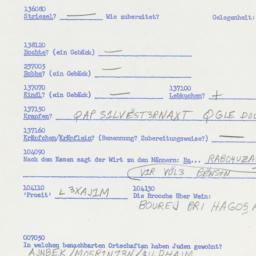 136080
Striezel? — Wie zubereitet? Gelegenheit:
138120
Dochte? (ein Gebäck) —
237003
Bobbe? (ein Gebäck) —
137070 137100
Kindl? (ein Gebäck) — Lebkuchen? +
137130
Krapfen? QAP S1LVEST3RNAXT
137160
Kräpfchen/Kräpflein? (Benennung? Zubereitungsweise?) —
104090
Nach dem Essen sagt der Wirt zu den Männern: Na...
V1R VØL3 BENSN
104110 104130
'Prosit' L3XAJ1M Die Broche über Wein:
BOUREJ PRI HAGOF
007030
In welchen benachbarten Ortschaften haben Juden gewohnt?